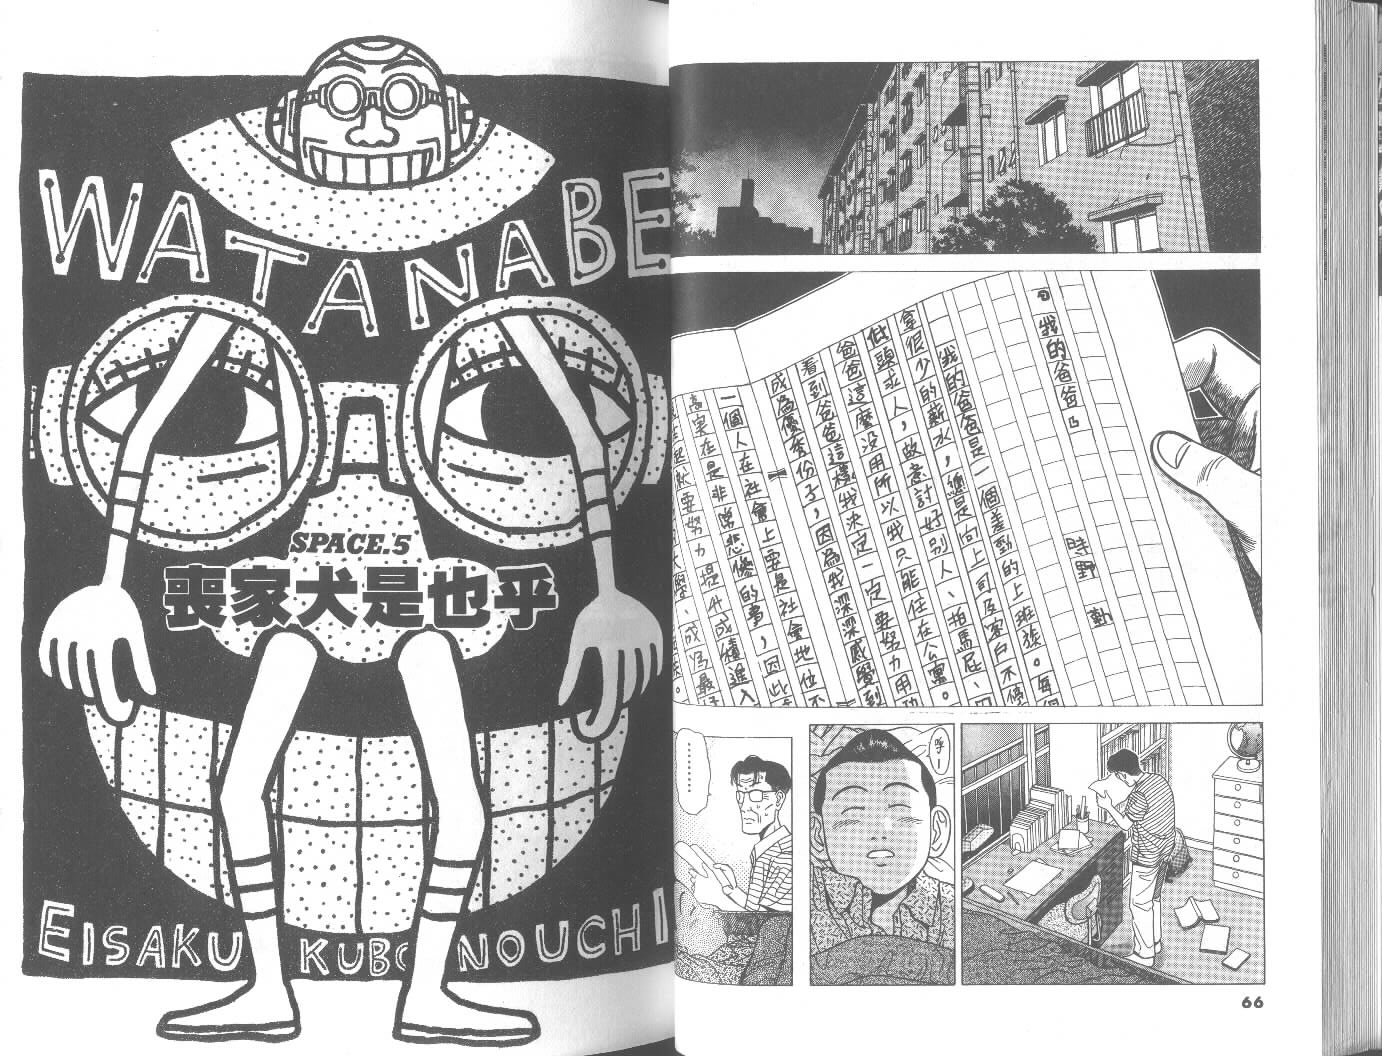 『我的爸爸』
時野 勤
我的爸爸是一個差勁的上班族。每個
拿很少的薪水，總是向上司及客戶不停
低頭求人，故意討好別人、拍馬屁、
爸爸這麼没用所以我只能住在公寓。
看到爸爸這樣我決定一定要努力用功
成為優秀份子，因為我深深感覺到
一個人在社會上要是社會地位不
高實在是非常悲慘的事，因此
起就要努力提升成績進入
大學、成為最
呼—
………
66
WATANABE
SPACE.5
喪家犬是也乎
EISAKU KUBONOUCHI